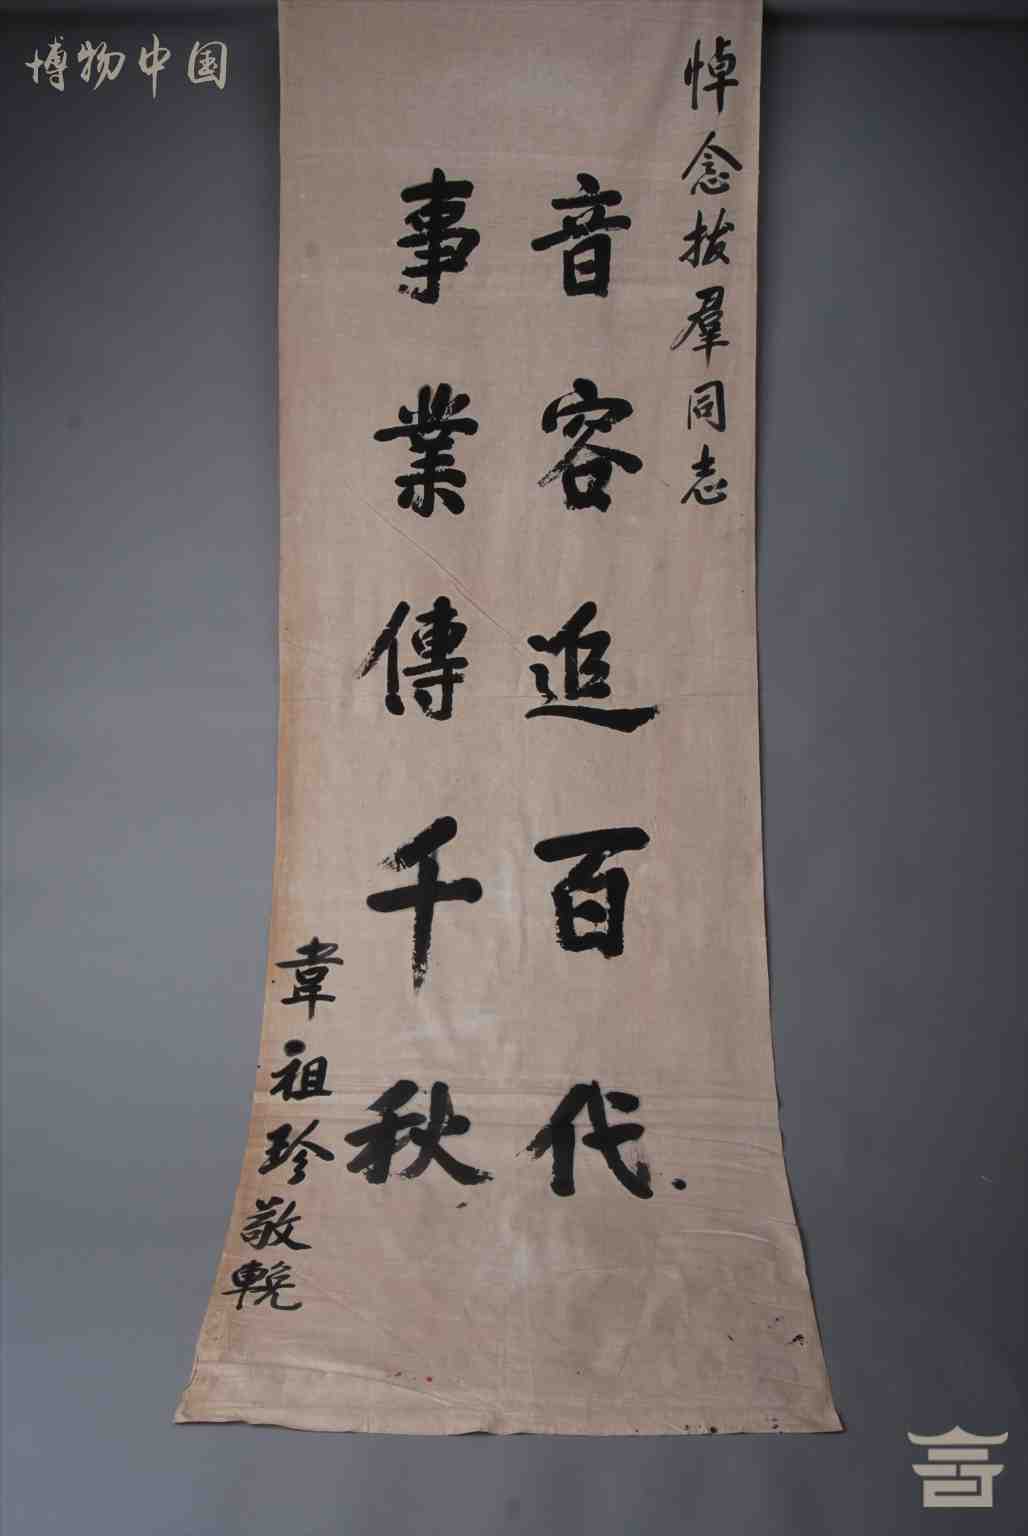 博物中国
悼念拔羣同志
音容追百代
事業傳千秋
韋祖珍敬輓